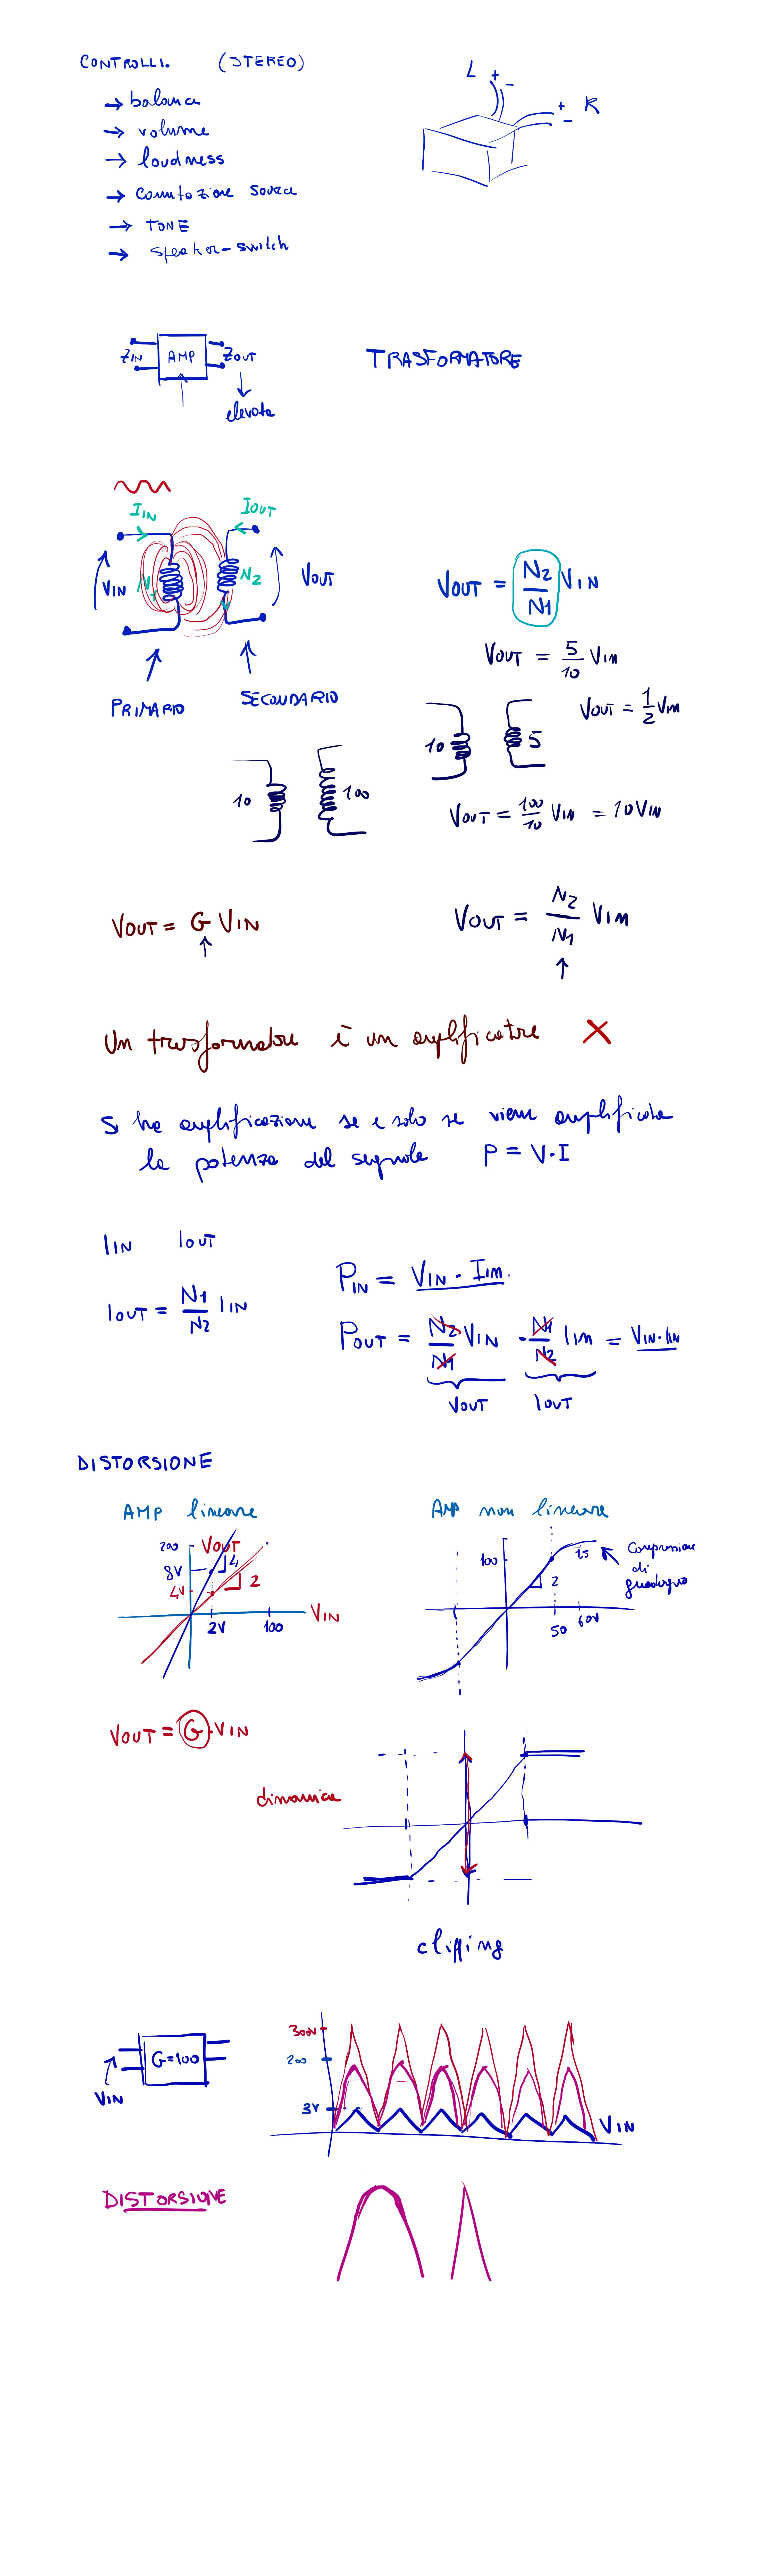 CONTROLLI. (STEREO)
L + -
+ - R
→ balance
→ volume
→ loudness
→ Commutazione source
→ TONE
→ speaker-switch
ZIN AMP ZOUT
elevata
TRASFORMATORE
IIN IOUT
VIN N1 N2 VOUT
PRIMARIO SECONDARIO
VOUT = N2/N1 VIN
VOUT = 5/10 VIN
VOUT = 1/2 VIN
10 5
10 100
VOUT = 100/10 VIN = 10 VIN
VOUT = G VIN
VOUT = N2/N1 VIN
Un trasformatore è un amplificatore X
Si ha amplificazione se e solo se viene amplificata
la potenza del segnale P = V·I
IIN IOUT
IOUT = N1/N2 IIN
PIN = VIN · IIN.
POUT = N2/N1 VIN · N1/N2 IIN = VIN·IIN
VOUT IOUT
DISTORSIONE
AMP lineare
200 VOUT
8V 4
4V 2
2V 100 VIN
AMP non lineare
100 1,5 Compressione di guadagno
2
50 60V
VOUT = G·VIN
dinamica
clipping
G=100
VIN
300V
200
3V
VIN
DISTORSIONE